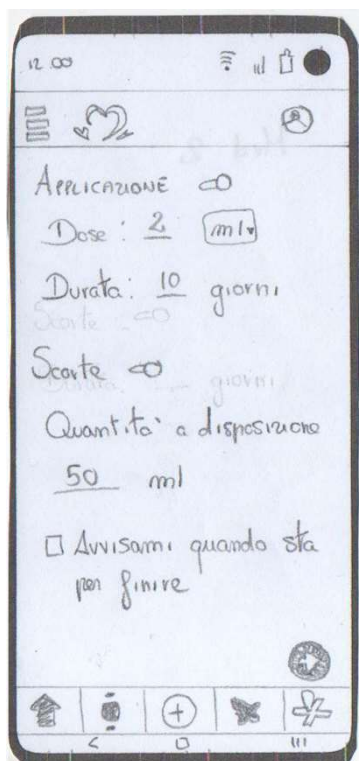 12.00
APPLICAZIONE
Dose: 2 ml
Durata: 10 giorni
Scorte
Scorte
Durata: giorni
Quantità a disposizione
50 ml
Avvisami quando sta
per finire